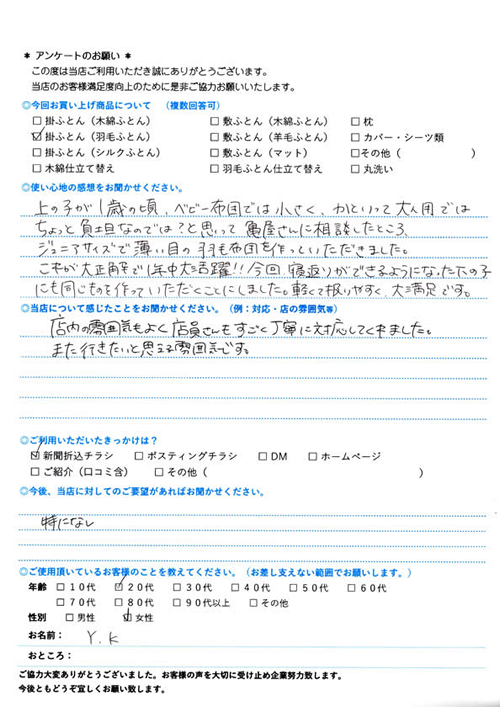 * アンケートのお願い *
この度は当店ご利用いただき誠にありがとうございます。
当店のお客様満足度向上のために是非ご協力お願いいたします。
◎今回お買い上げ商品について （複数回答可）
□ 掛ふとん（木綿ふとん） □ 敷ふとん（木綿ふとん） □ 枕
☑ 掛ふとん（羽毛ふとん） □ 敷ふとん（羊毛ふとん） □ カバー・シーツ類
□ 掛ふとん（シルクふとん） □ 敷ふとん（マット） □その他（ ）
□ 木綿仕立て替え □ 羽毛ふとん仕立て替え □ 丸洗い
◎使い心地の感想をお聞かせください。
上の子が1歳の頃、ベビー布団では小さく、かといって大人用では
ちょっと負担なのでは？と思って亀屋さんに相談したところ、
ジュニアサイズで薄い目の羽毛布団を作っていただきました。
これが大正解で1年中大活躍!! 今回、寝返りができるようになった下の子
にも同じものを作っていただくことにしました。軽くて扱りやすく、大満足です。
◎当店について感じたことをお聞かせください。（例：対応・店の雰囲気等）
店内の雰囲気もよく店員さんもすごく丁寧に対応してくれました。
また行きたいと思える雰囲気です。
◎ご利用いただいたきっかけは？
☑ 新聞折込チラシ □ ポスティングチラシ □ DM □ ホームページ
□ ご紹介（口コミ含） □ その他（ ）
◎今後、当店に対してのご要望があればお聞かせください。
特になし
◎ご使用頂いているお客様のことを教えてください。（お差し支えない範囲でお願いします。）
年齢 □ 10代 ☑ 20代 □ 30代 □ 40代 □ 50代 □ 60代
□ 70代 □ 80代 □ 90代以上 □ その他
性別 □ 男性 ☑ 女性
お名前： Y.K
おところ：
ご協力大変ありがとうございました。お客様の声を大切に受け止め企業努力致します。
今後ともどうぞ宜しくお願い致します。